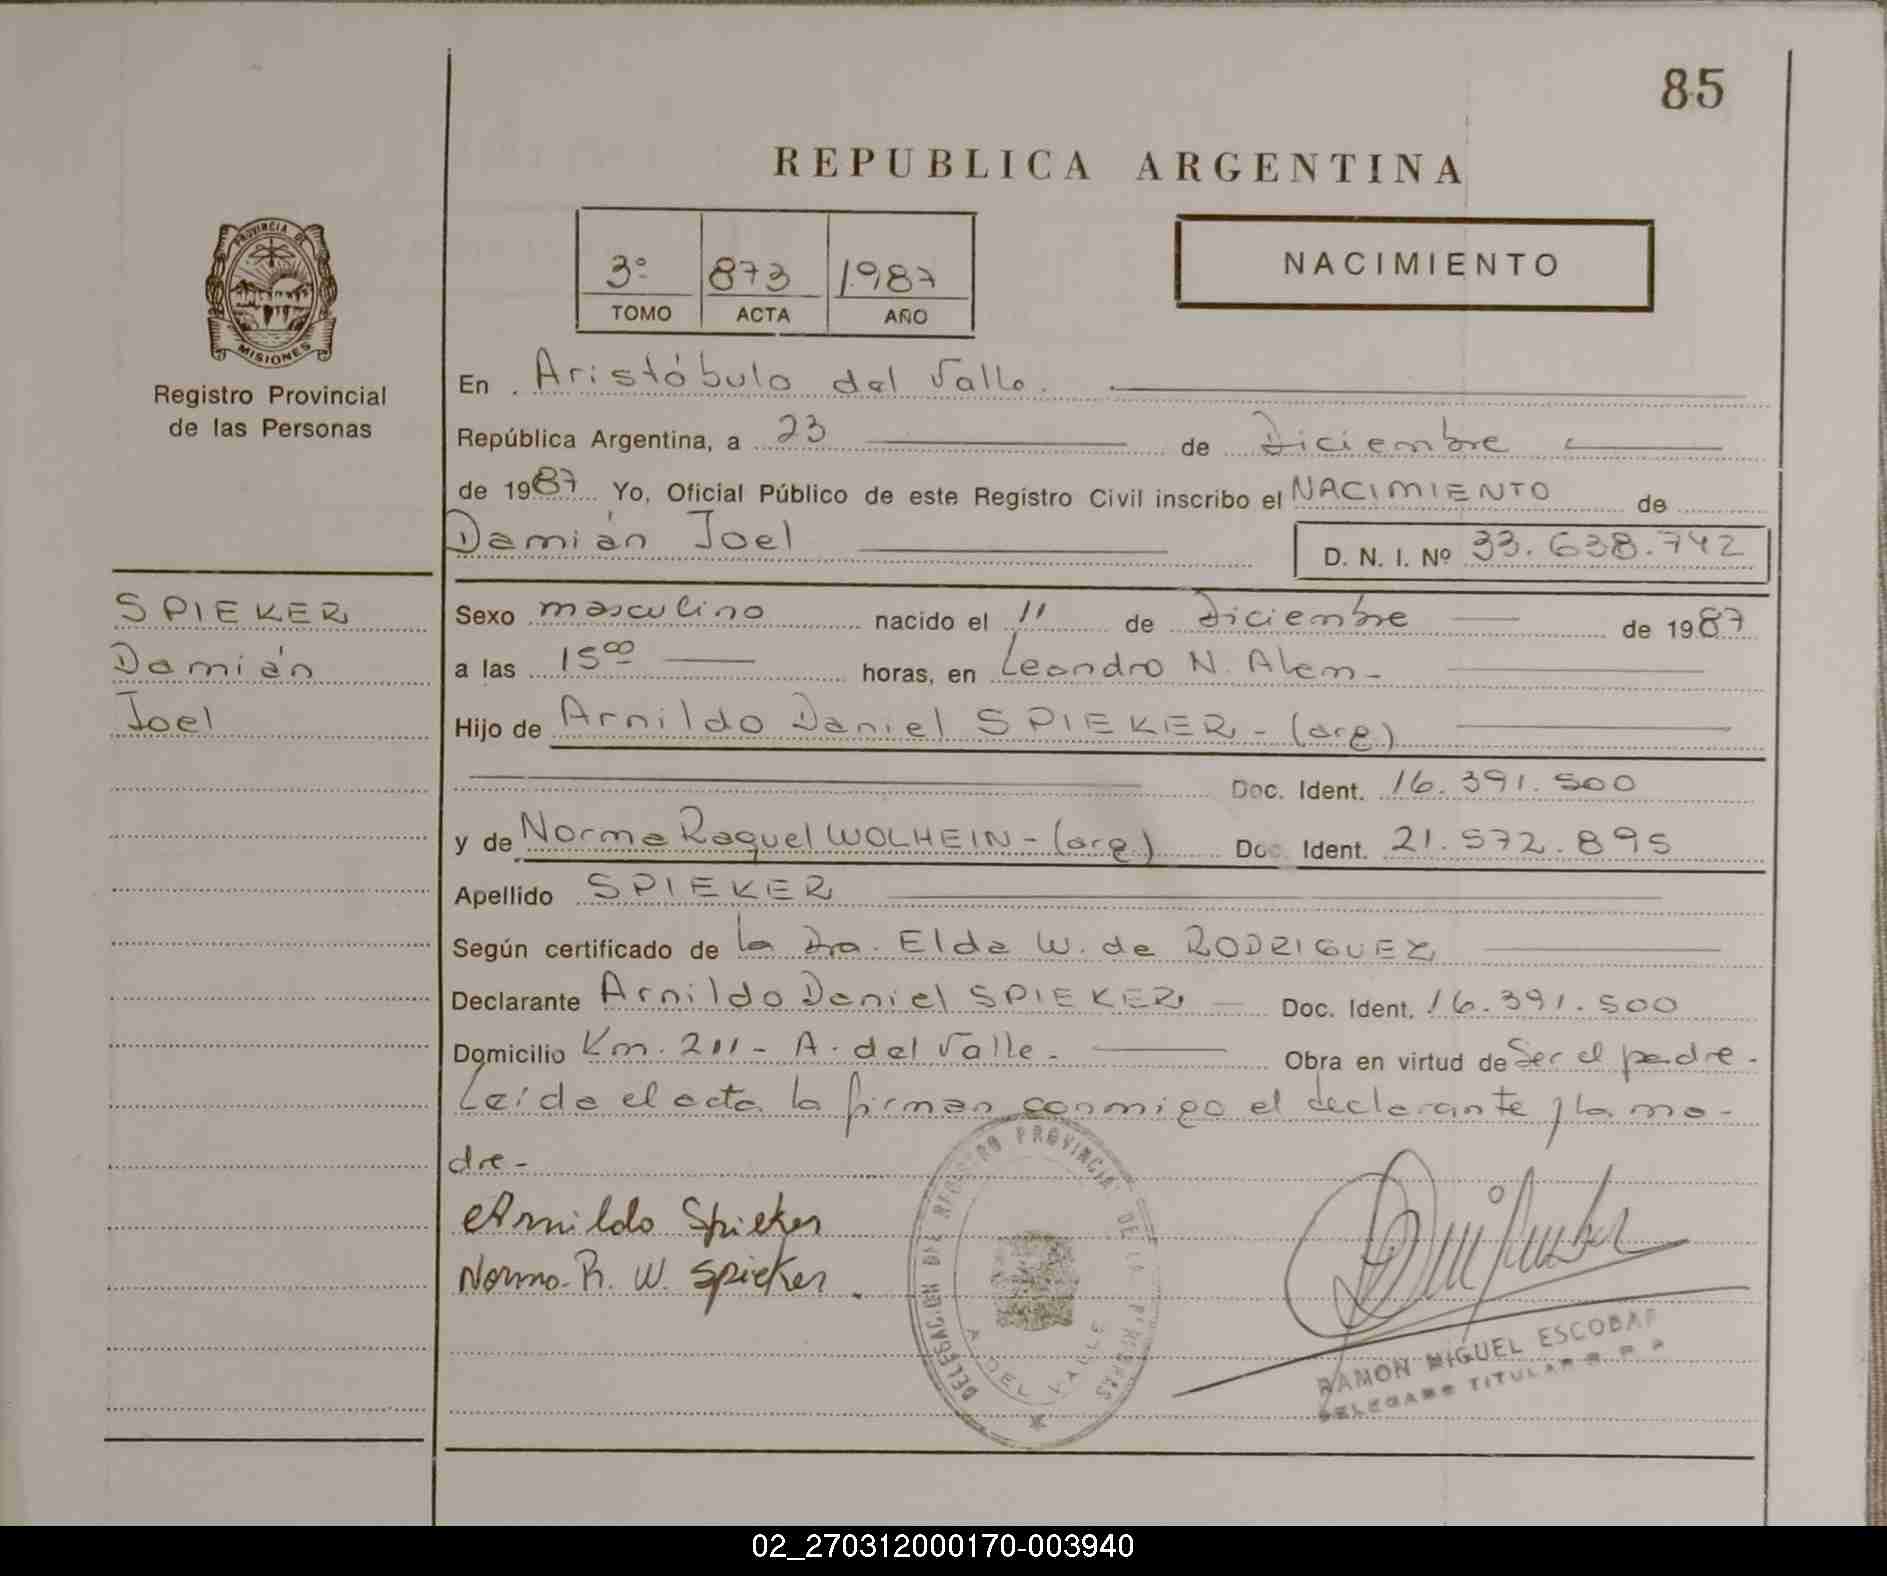 85
REPUBLICA ARGENTINA
PROVINCIA DE
MISIONES
Registro Provincial
de las Personas
3º 873 1987
TOMO ACTA AÑO
NACIMIENTO
En Aristóbulo del Valle.
República Argentina, a 23 de Diciembre
de 1987 Yo, Oficial Público de este Registro Civil inscribo el NACIMIENTO de
Damián Joel D. N. I. Nº 33.638.742
SPIEKER
Damián
Joel
Sexo masculino nacido el 11 de Diciembre de 1987
a las 15 00 horas, en Leandro N. Alem -
Hijo de Arnildo Daniel SPIEKER - (arg)
Doc. Ident. 16.391.500
y de Norma Raquel WOLHEIN - (arg) Doc. Ident. 21.572.895
Apellido SPIEKER
Según certificado de la Dra. Elda W. de RODRIGUEZ
Declarante Arnildo Daniel SPIEKER Doc. Ident. 16.391.500
Domicilio Km. 211 - A. del Valle. Obra en virtud de Ser el padre -
Leída el acta la firman conmigo el declarante y la ma-
dre -
Arnildo Spieker
Norma R. W. Spieker.
DELEGACION DEL REGISTRO PROVINCIAL DE LA PERSONAS
A. DEL VALLE
RAMON MIGUEL ESCOBAR
DELEGADO TITULAR R. P. P.
02_270312000170-003940